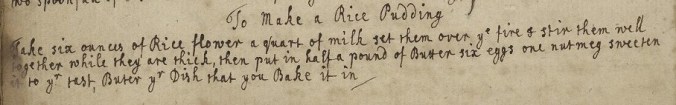 To Make a Rice Pudding
Take six ounces of Rice flower a quart of milk set them over ye fire & stir them well
together while they are thick, then put in half a pound of Butter six eggs one nutmeg sweeten
it to yr tast, Buter yr Dish that you Bake it in